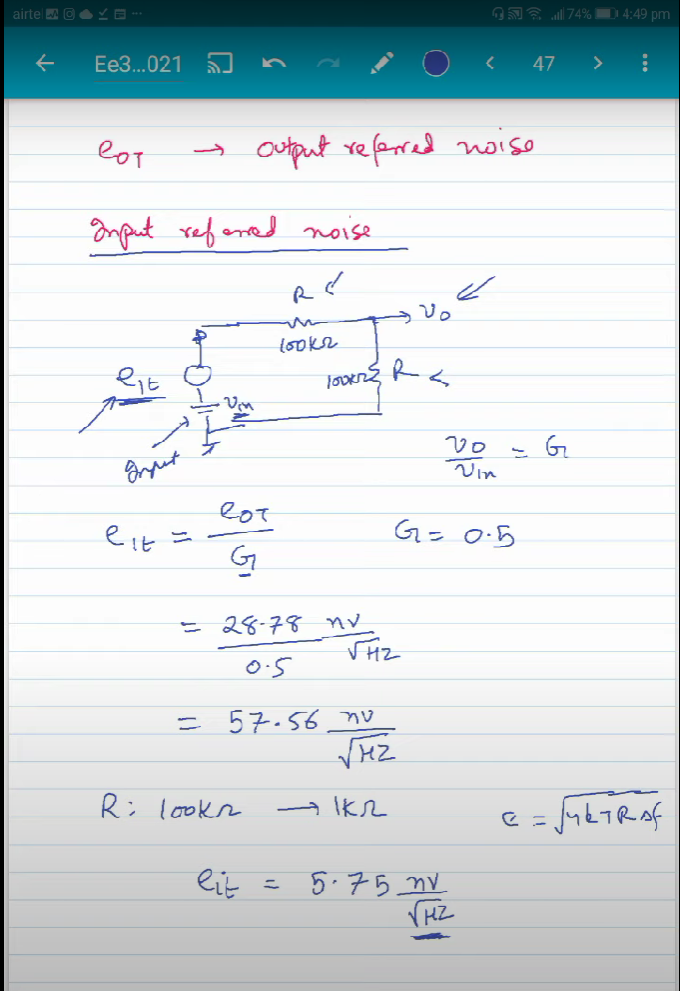 airtel 74% 4:49 pm
Ee3...021 47
eOT → output referred noise
Input referred noise
R
vo
100kΩ
eit 100kΩ R
vin
Input
vo/vin = G
eit = eOT/G G = 0.5
= 28.78/0.5 nv/√HZ
= 57.56 nv/√HZ
R: 100kΩ → 1kΩ e = √4kTRΔf
eit = 5.75 nv/√HZ